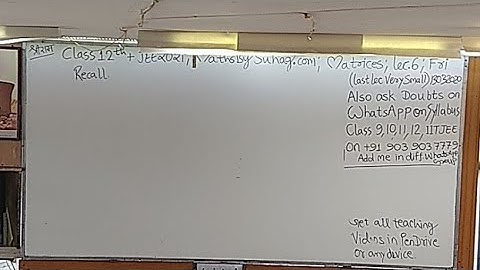 श्रीराम Class 12th + JEE2021, MathsBySuhag.com; Matrices; lec.6; Fri
Recall
(last lec Very Small)
Also ask Doubts on
WhatsApp on Syllabus
Class 9,10,11,12, IITJEE
On +91 903 903 7779
Add me in diff. WhatsApp
Get all teaching
Videos in PenDrive
or any device